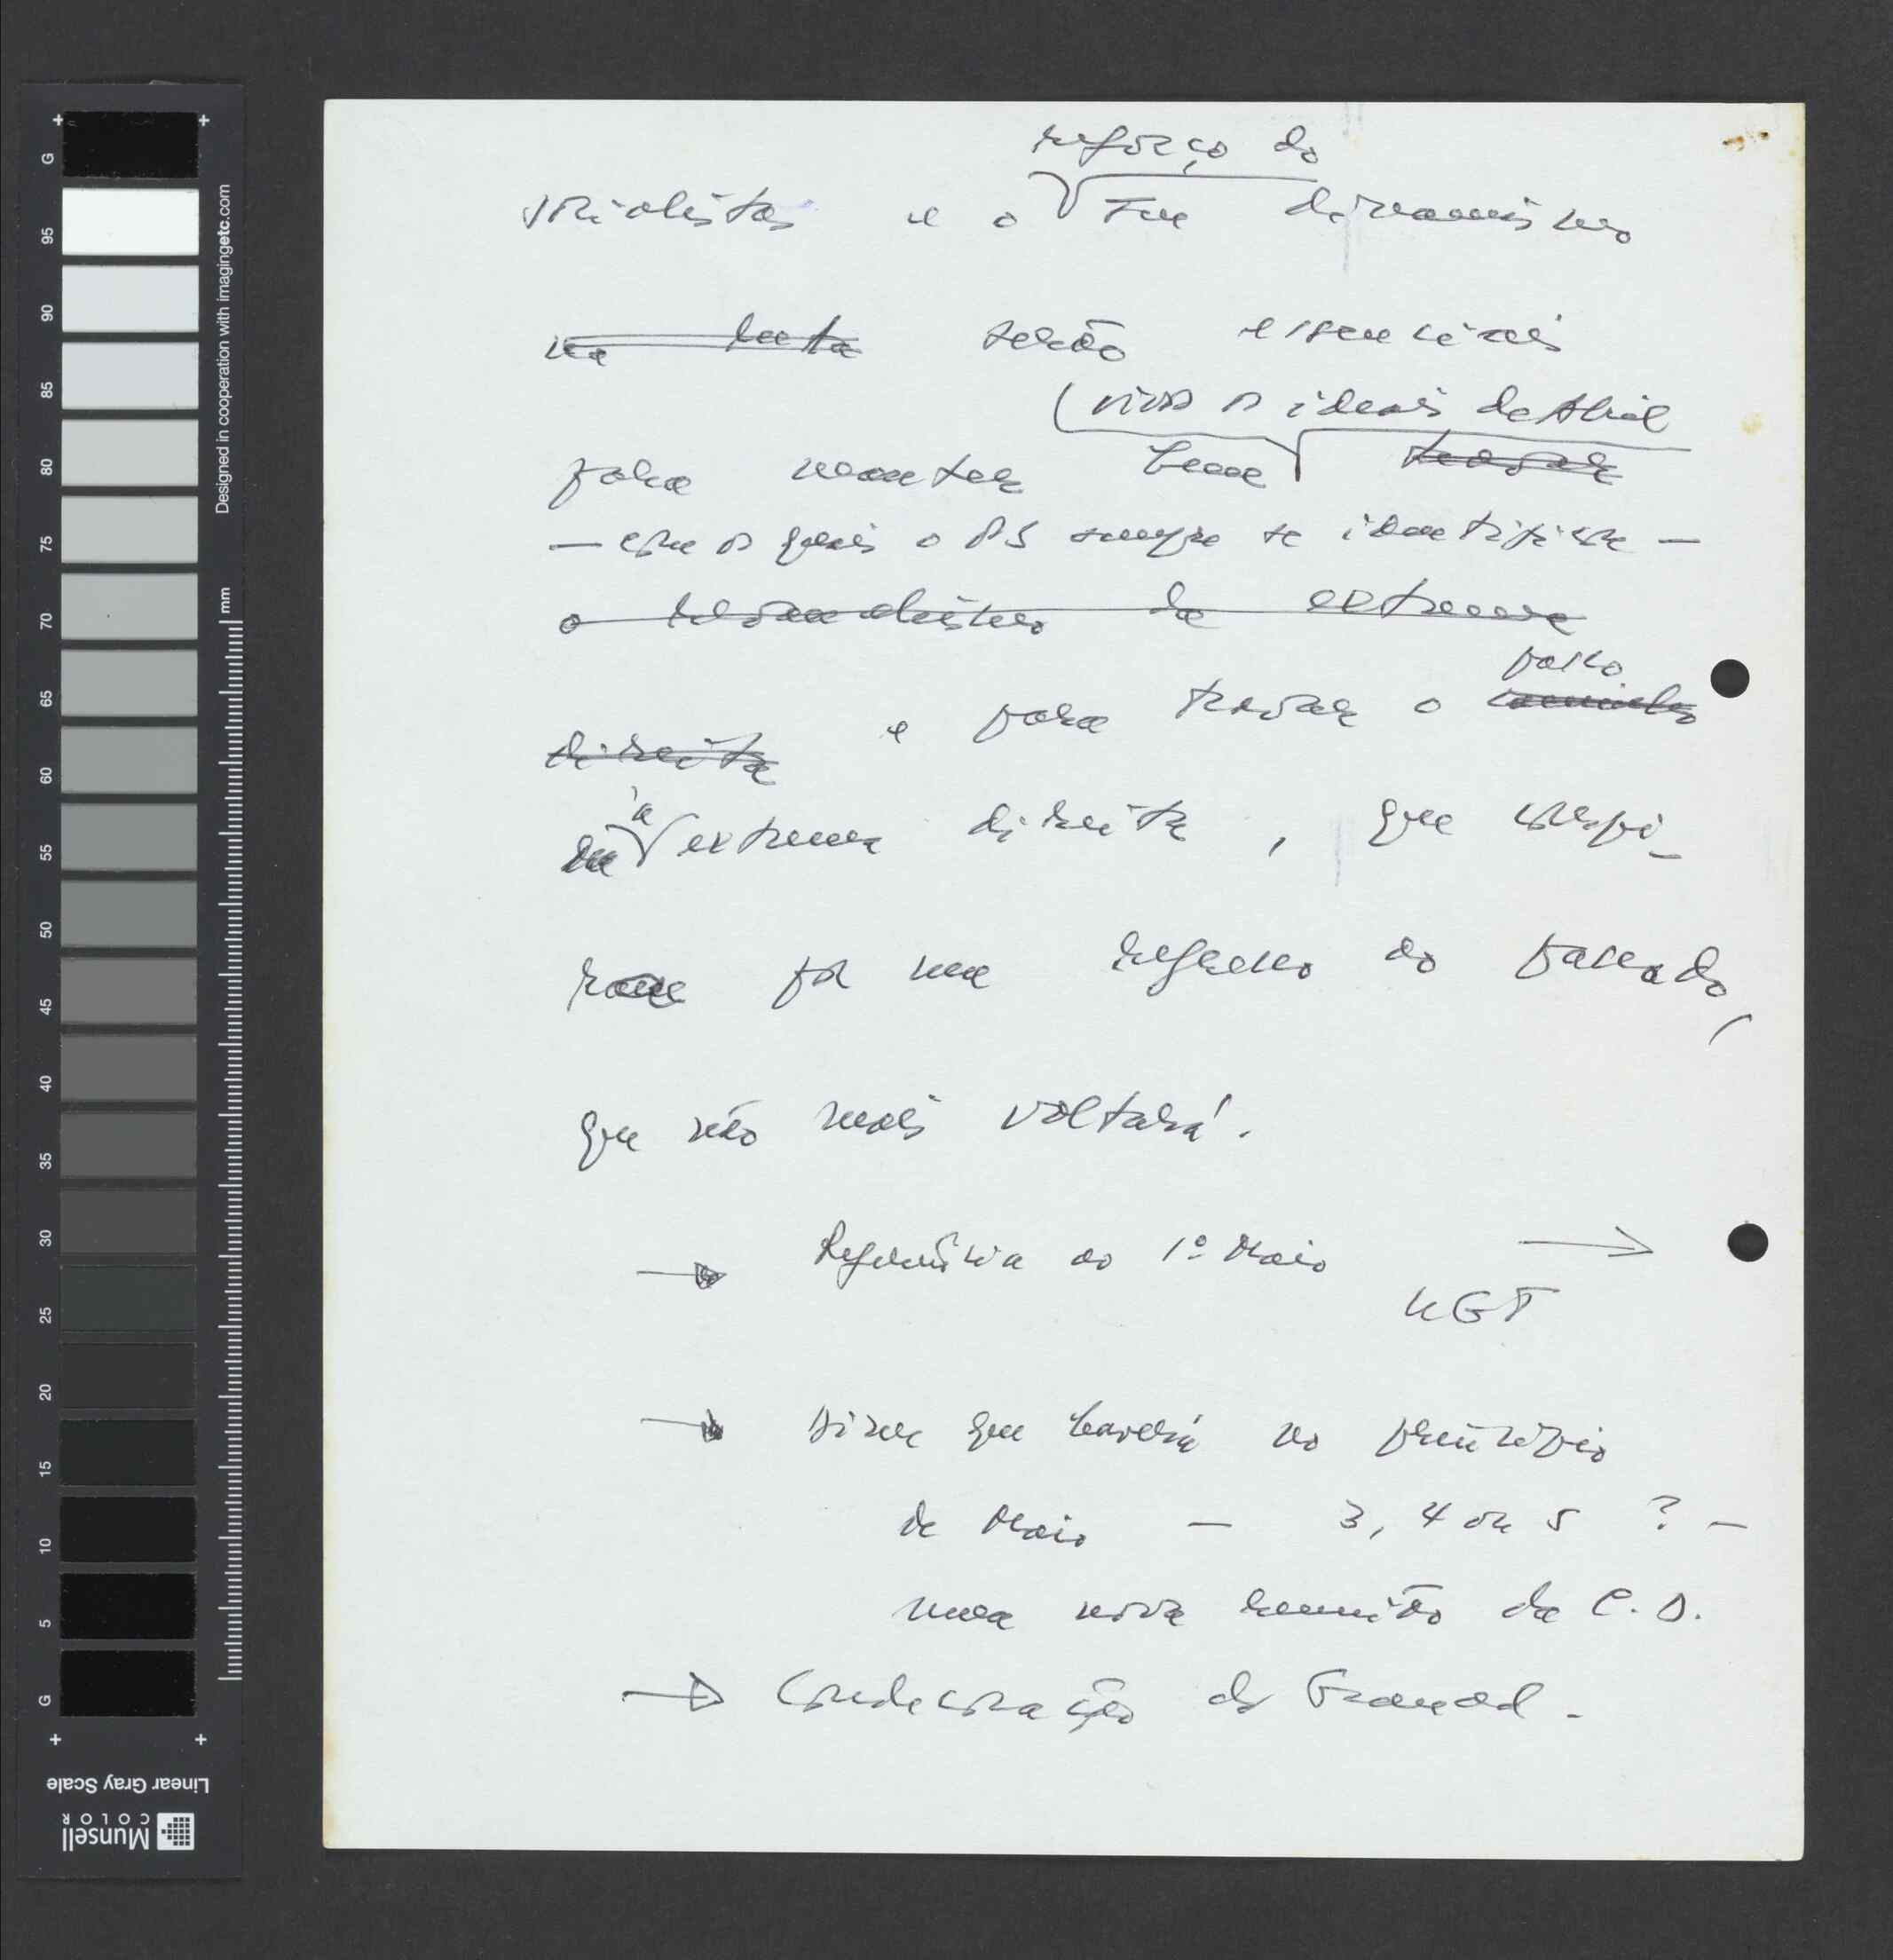 reforço do
socialistas e o seu dinamismo
na luta serão essenciais
(vivos os ideais de Abril
para manter bem travar
— com os quais o PS sempre se identificou —
o revanchismo da extrema
passo
direita e para travar o caminho
à
da extrema direita, que conspi-
ram por um regresso do passado,
que não mais voltará.
→ Referência ao 1º Maio →
UGT
→ Dizer que haverá no princípio
de Maio — 3, 4 ou 5 ? —
uma nova reunião da C. D.
→ Condecoração do Granad.
G
95
90
85
80
75
70
65
60
55
50
45
40
35
30
25
20
15
10
5
G
Designed in cooperation with imagingetc.com
mm
Linear Gray Scale
Munsell
COLOR